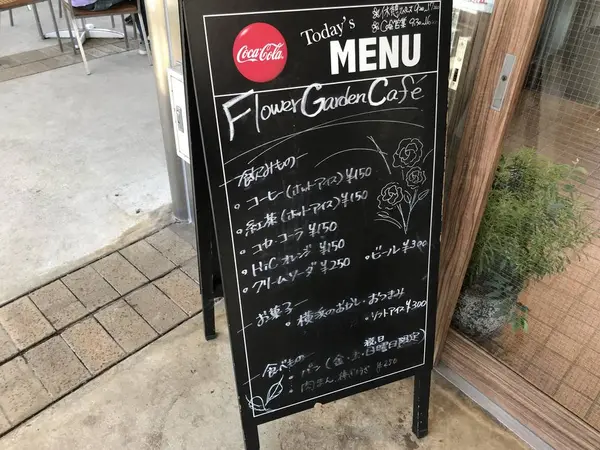 Coca-Cola
Today's
MENU
Flower Garden Café
飲みもの
コーヒー(ホット・アイス)¥150
紅茶(ホット・アイス)¥150
コカ・コーラ ¥150
HiC オレンジ ¥150
クリームソーダ ¥250
ビール ¥300
お菓子
横浜のおかし・おつまみ
ソフトアイス ¥300
食べもの
パン(金・土・日曜日限定)
祝日
肉まん